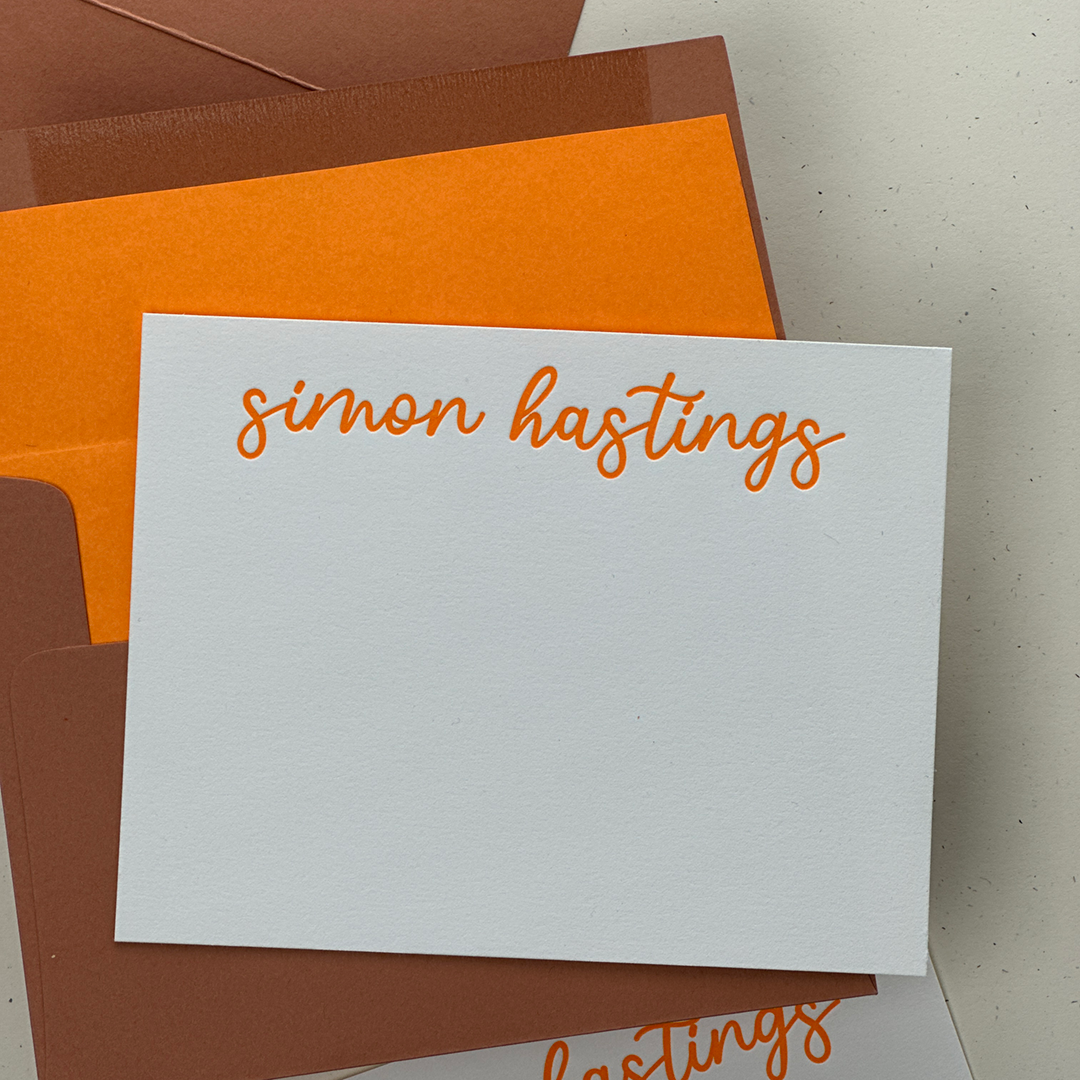 simon hastings
hastings